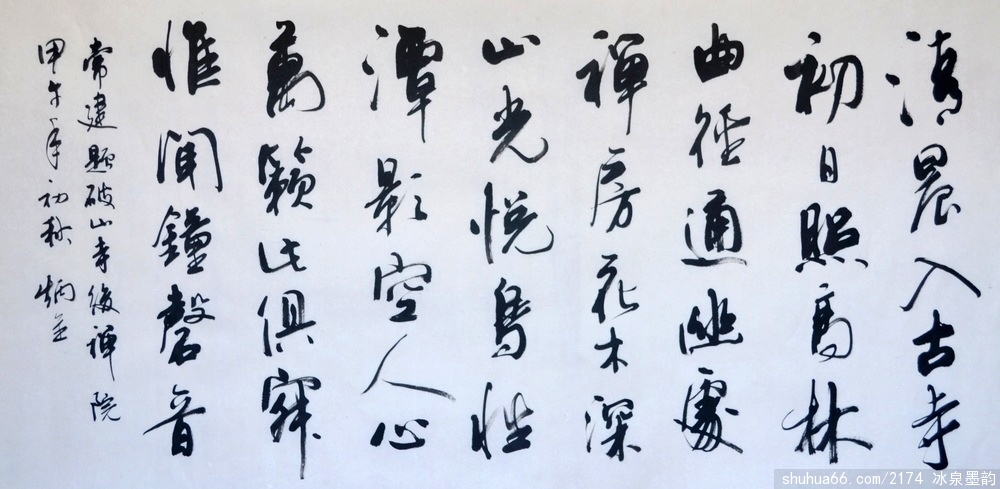 清晨入古寺
初日照高林
曲徑通幽處
禪房花木深
山光悦鳥性
潭影空人心
萬籟此俱寂
惟聞鐘磬音
常建題破山寺後禪院
甲午年初秋 炳金
shuhua66.com/2174 冰泉墨韵